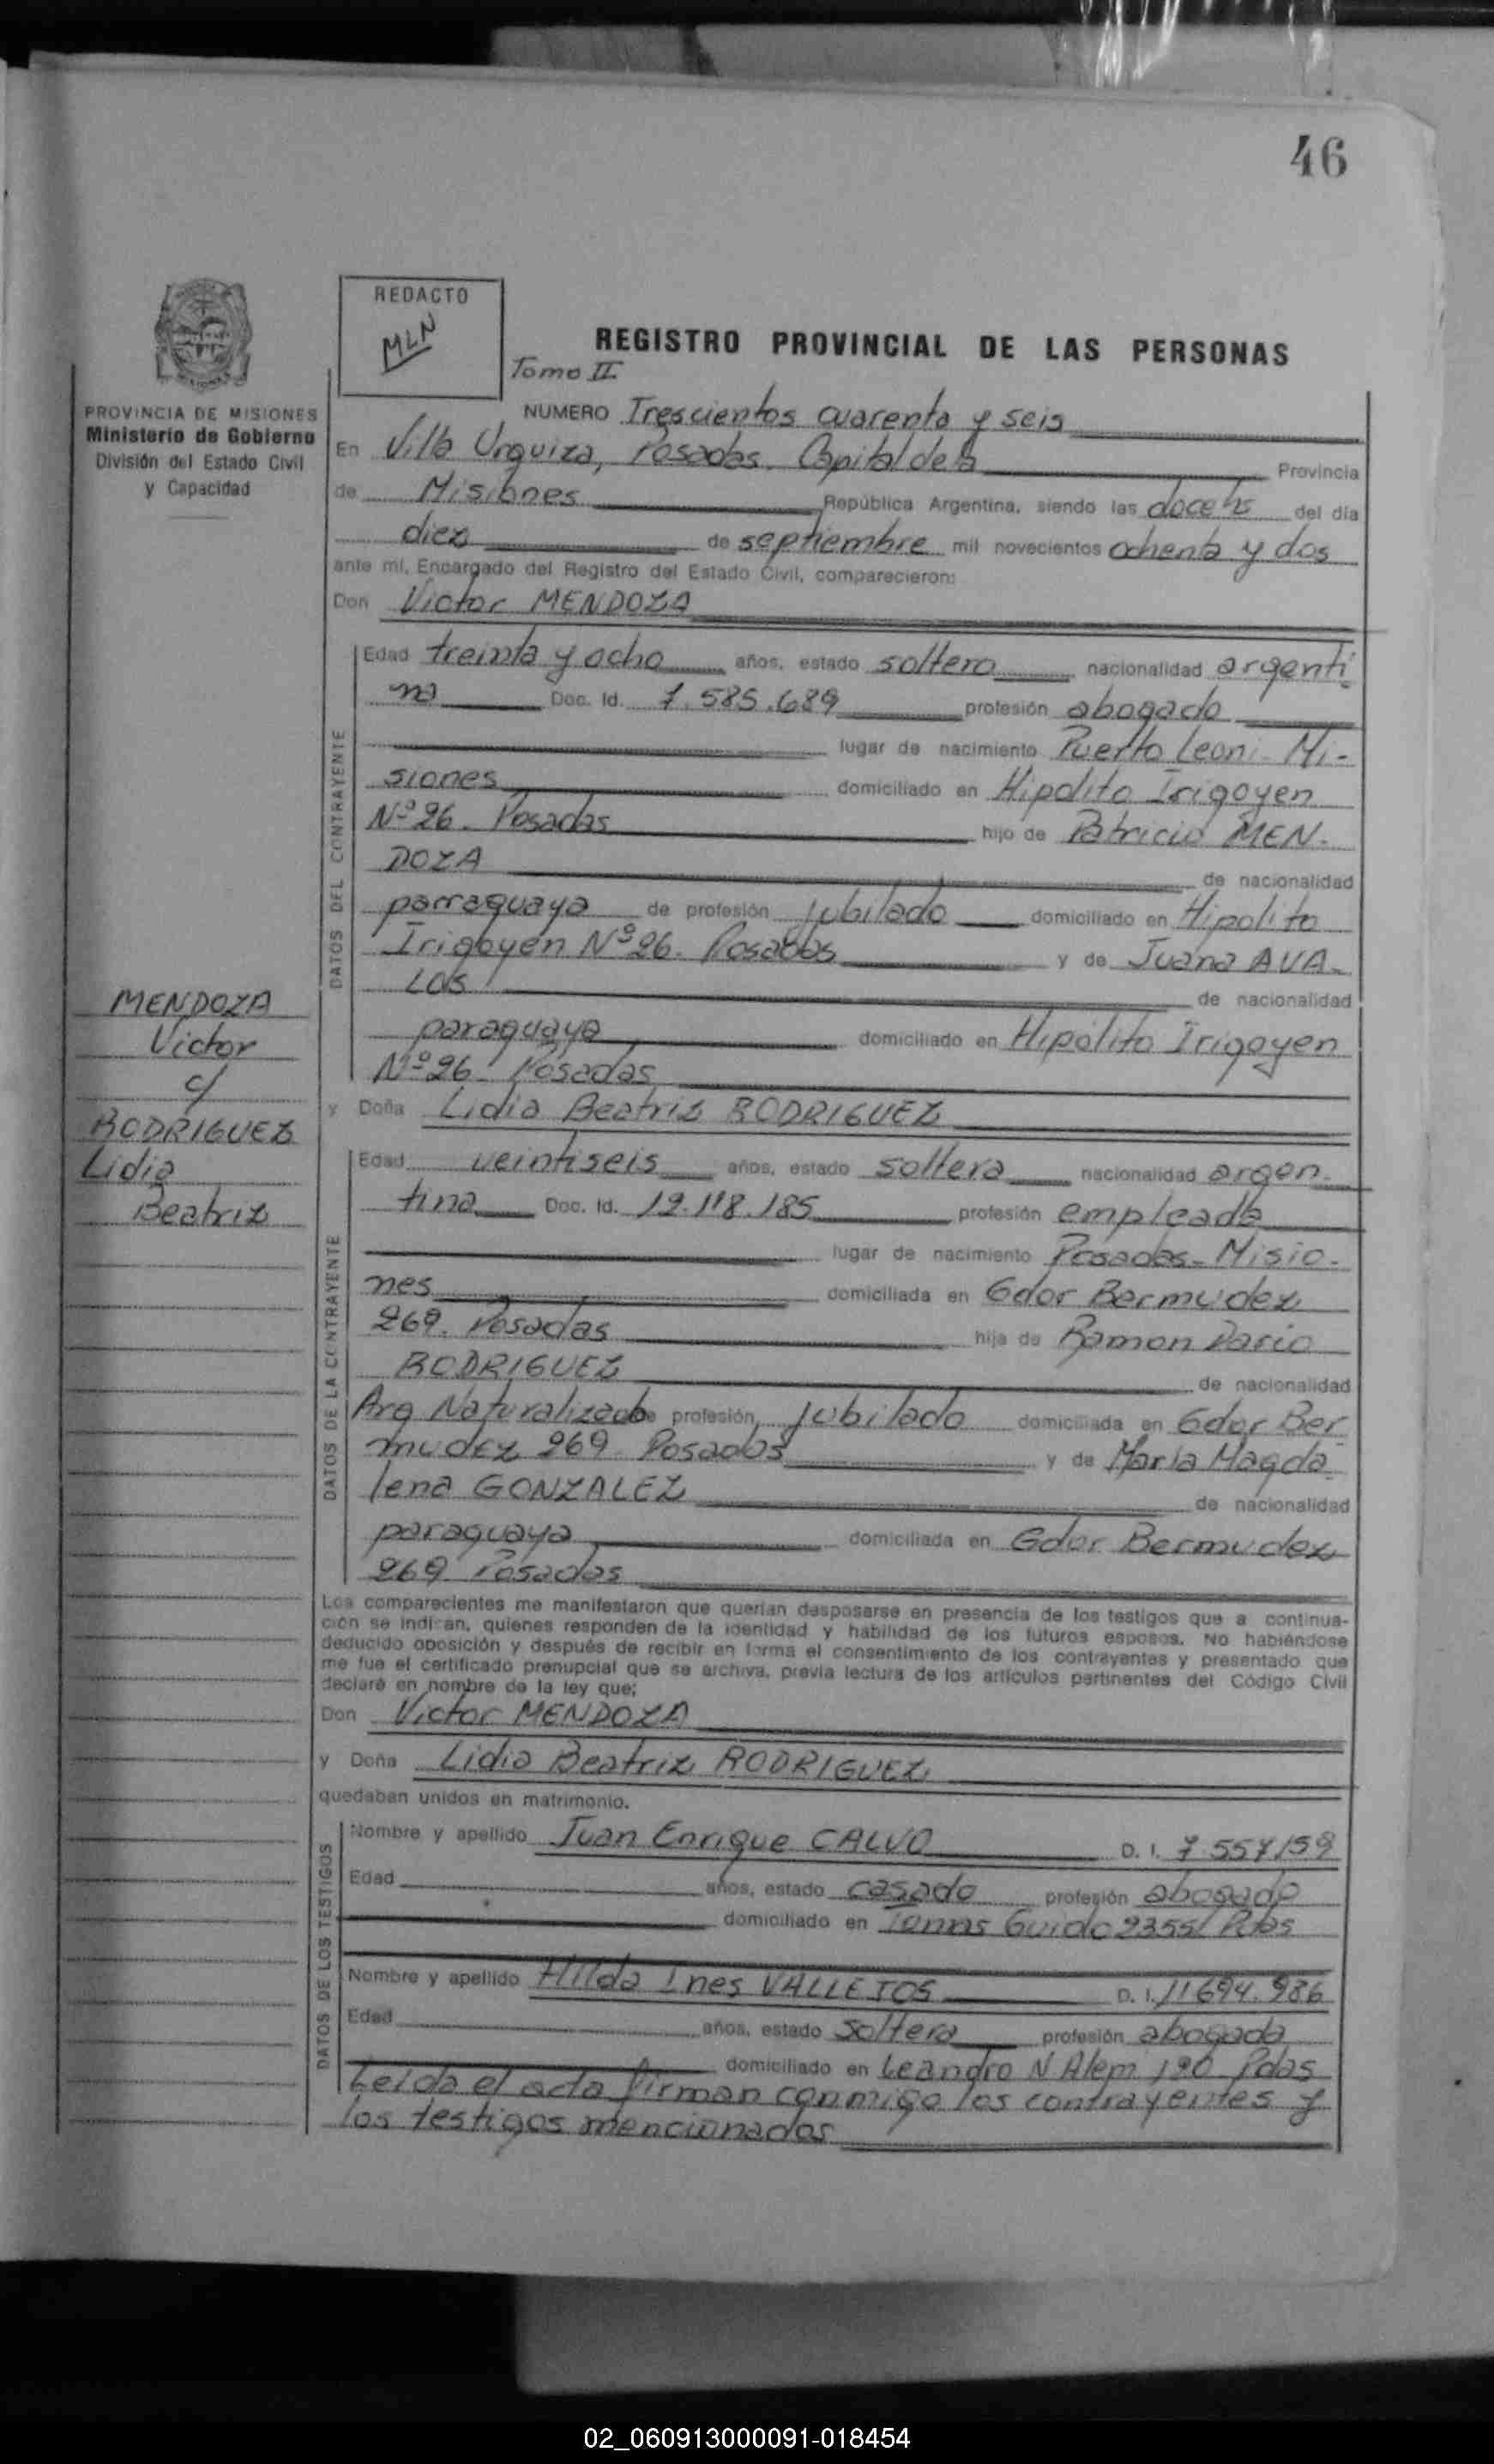 46
REDACTO
MLN
REGISTRO PROVINCIAL DE LAS PERSONAS
Tomo II
PROVINCIA DE MISIONES
Ministerio de Gobierno
División del Estado Civil
y Capacidad
NUMERO Trescientos cuarenta y seis
En Villa Urquiza, Posadas. Capital de la Provincia
de Misiones República Argentina, siendo las doce hs del día
diez de septiembre mil novecientos ochenta y dos
ante mí, Encargado del Registro del Estado Civil, comparecieron:
Don Victor MENDOZA
DATOS DEL CONTRAYENTE
Edad treinta y ocho años, estado soltero nacionalidad argenti
no Doc. Id. 7.585.689 profesión abogado
lugar de nacimiento Puerto Leoni - Mi-
siones domiciliado en Hipolito Irigoyen
Nº 26. Posadas hijo de Patricio MEN-
DOZA de nacionalidad
parraguaya de profesión jubilado domiciliado en Hipolito
Irigoyen Nº 26. Posadas y de Juana AVA-
LOS de nacionalidad
paraguaya domiciliado en Hipólito Irigoyen
Nº 26. Posadas
MENDOZA
Victor
c/
RODRIGUEZ
Lidia
Beatriz
y Doña Lidia Beatriz RODRIGUEZ
DATOS DE LA CONTRAYENTE
Edad veintiseis años, estado soltera nacionalidad argen-
tina Doc. Id. 12.118.185 profesión empleada
lugar de nacimiento Posadas - Misio-
nes domiciliada en Gdor Bermudez
269. Posadas hija de Ramon Dario
RODRIGUEZ de nacionalidad
Arg Naturalizado de profesión jubilado domiciliada en Gdor Ber
mudez 269 Posadas y de Maria Magda-
lena GONZALEZ de nacionalidad
paraguaya domiciliada en Gdor. Bermudez
269 Posadas
Los comparecientes me manifestaron que querían desposarse en presencia de los testigos que a continua-
ción se indican, quienes responden de la identidad y habilidad de los futuros esposos. No habiéndose
deducido oposición y después de recibir en forma el consentimiento de los contrayentes y presentado que
me fue el certificado prenupcial que se archiva, previa lectura de los artículos pertinentes del Código Civil
declaré en nombre de la ley que;
Don Victor MENDOZA
y Doña Lidia Beatriz RODRIGUEZ
quedaban unidos en matrimonio.
DATOS DE LOS TESTIGOS
Nombre y apellido Juan Enrique CALVO D. I. 7.557.159
Edad años, estado casado profesión abogado
domiciliado en Tomas Guido 2355 Pdas
Nombre y apellido Hilda Ines VALLEJOS D. I. 11694.986
Edad años, estado soltera profesión abogada
domiciliado en Leandro N Alem 190 Pdas
Leida el acta firman conmigo los contrayentes y
los testigos mencionados
02_060913000091-018454